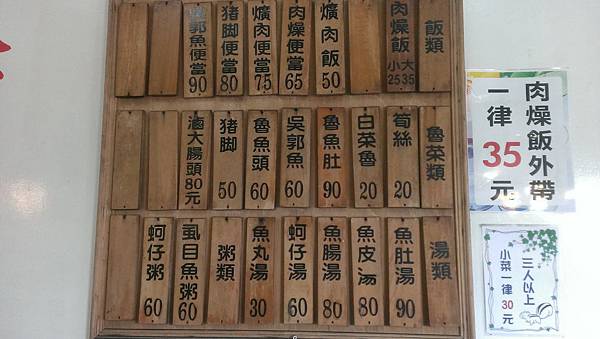 飯類
肉燥飯 小25 大35
爌肉飯 50
肉燥便當 65
爌肉便當 75
猪脚便當 80
吳郭魚便當 90
魯菜類
筍絲 20
白菜魯 20
魯魚肚 90
吳郭魚 60
魯魚頭 60
猪脚 50
滷大腸頭 80元
湯類
魚肚湯 90
魚皮湯 80
魚腸湯 80
蚵仔湯 60
魚丸湯 30
粥類
虱目魚粥 60
蚵仔粥 60
肉燥飯外帶
一律35元
三人以上
小菜一律30元